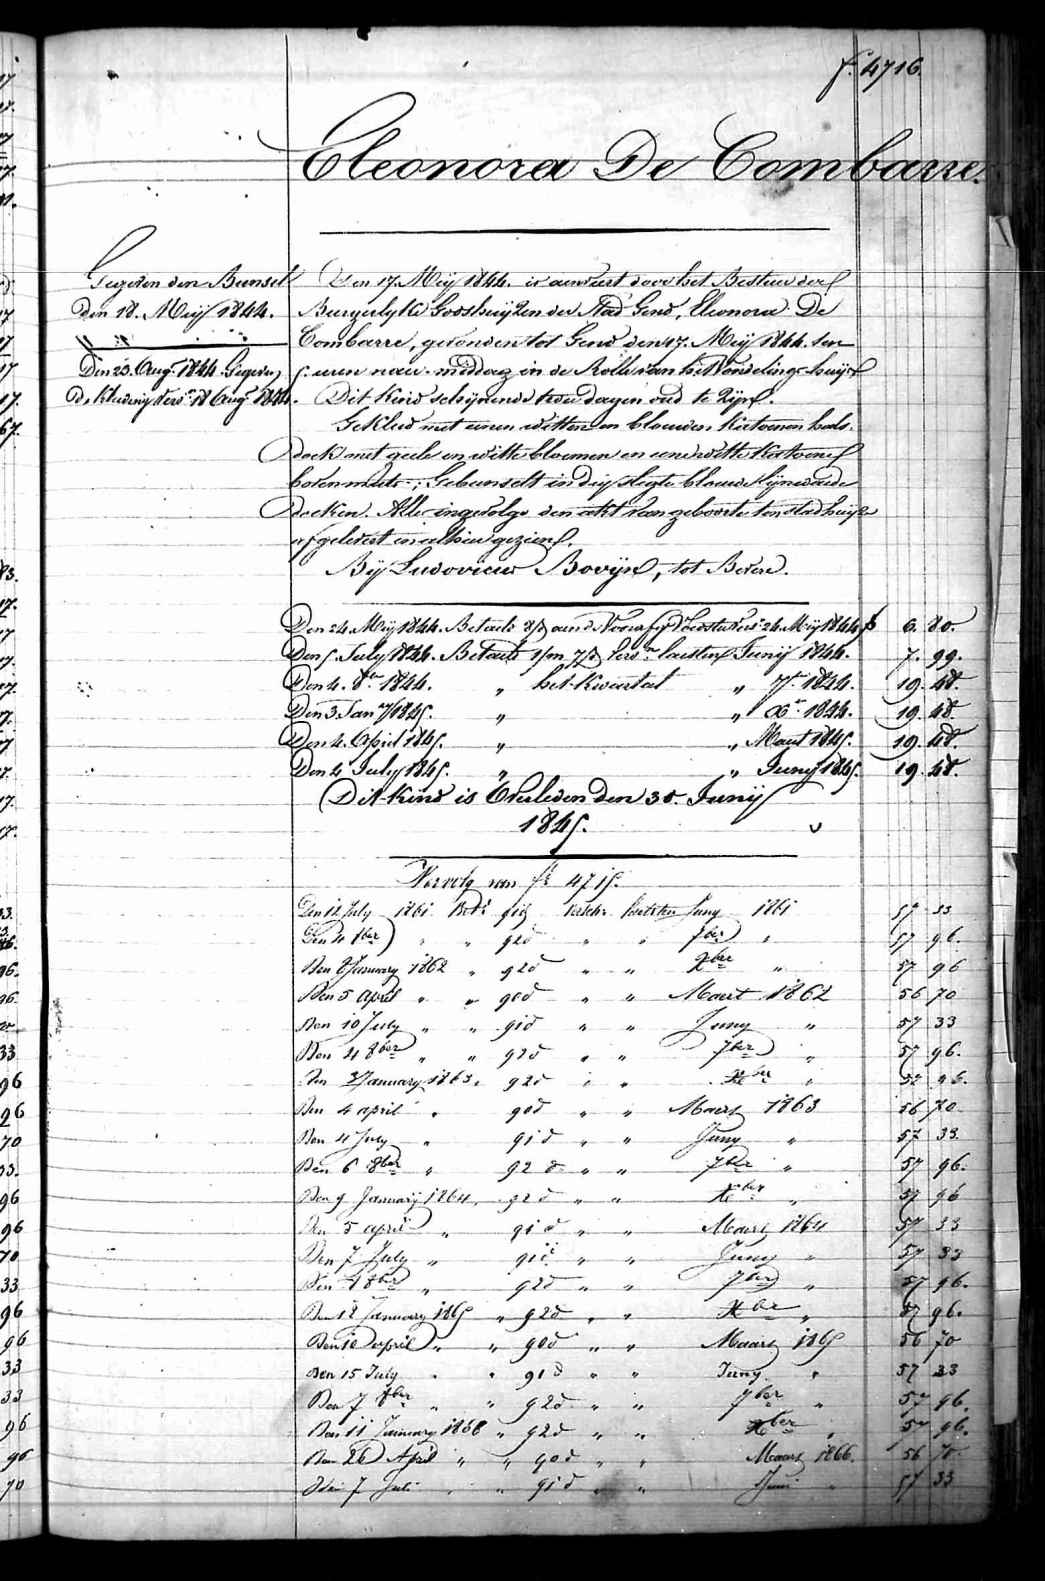 f. 4716.
Eleonora De Combarre.
Gegeven den Bunsel
Den 18. Meij 1844.
Den 23. Aug. 1844. Gegeven
De kleeding vers. 18 Aug. 1844.
Den 17. Meij 1844. is aenveert door het Bestier der
Burgerlyke Godshuijzen der Stad Gend, Eleonora De
Combarre, gevonden tot Gend den 17. Meij 1844. ten
5. uren naer-middag in de Rolle van het Vondelings-huijs
Dit Kind schynende twee dagen oud te zijn.
Gekleed met eenen witten en blouwen kattoenen hals-
doek met geele en witte bloemen en eene witte kattoene
boten muts; Gebunselt in dry slegte blouwe lijnwaede
doeken. Alles ingevolge den akt van geboorte ten stadhuijze
afgelevert en alhier gezien.
Bij Ludovicus Bovijn, tot Bevere.
Den 24. Meij 1844. Betaelt aende Voorsz. vers. 24. Meij 1844 f 6. 80.
Den 5. July 1844. Betaelt vers. laesten Junij 1844. 7. 99.
Den 4. 8ber 1844. " het Kwartael " 7ber 1844. 19. 48.
Den 3. Jany 1845. " " Xr. 1844. 19. 48.
Den 4. April 1845. " " Maert 1845. 19. 48.
Den 4 July 1845. " " Juny 1845. 19. 48.
Dit Kind is Overleden den 30. Junij
1845.
Vervolg van f° 4715.
Den 12 July 1861 Bett 91d versch. laetsten Juny 1861 57 33
Den 4 8ber " " 92d " " 7ber " 57 96.
Den 8 January 1862 " 92d " " Xber " 57 96
Den 5 april " " 90d " " Maert 1862 56 70
Den 10 July " " 91d " " Juny " 57 33
Den 4 8ber " " 92d " " 7ber " 57 96.
Den 3 January 1863 " 92d " " Xber " 57 96.
Den 4 april " 90d " " Maert 1863 56 70
Den 4 July " 91d " " Juny " 57 33.
Den 6 8ber " 92d " " 7ber " 57 96.
Den 9 Januarij 1864 " 92d " " Xber " 57 96
Den 5 april " 91d " " Maert 1864 57 33
Den 7 July " 91d " " Juny " 57 33
Den 8ber " 92d " " 7ber " 57 96.
Den 12 January 1865 " 92d " " Xber " 57 96.
Den 10 april " " 90d " " Maart 1865 56 70
Den 15 July " " 91d " " Juny " 57 33
Den 7 8ber " " 92d " " 7ber " 57 96.
Den 11 January 1866 " 92d " " Xber " 57 96.
Den 26 April " " 90d " " Maart 1866. 56 70.
Den 7 Juli " " 91d " " Juni " 57 33